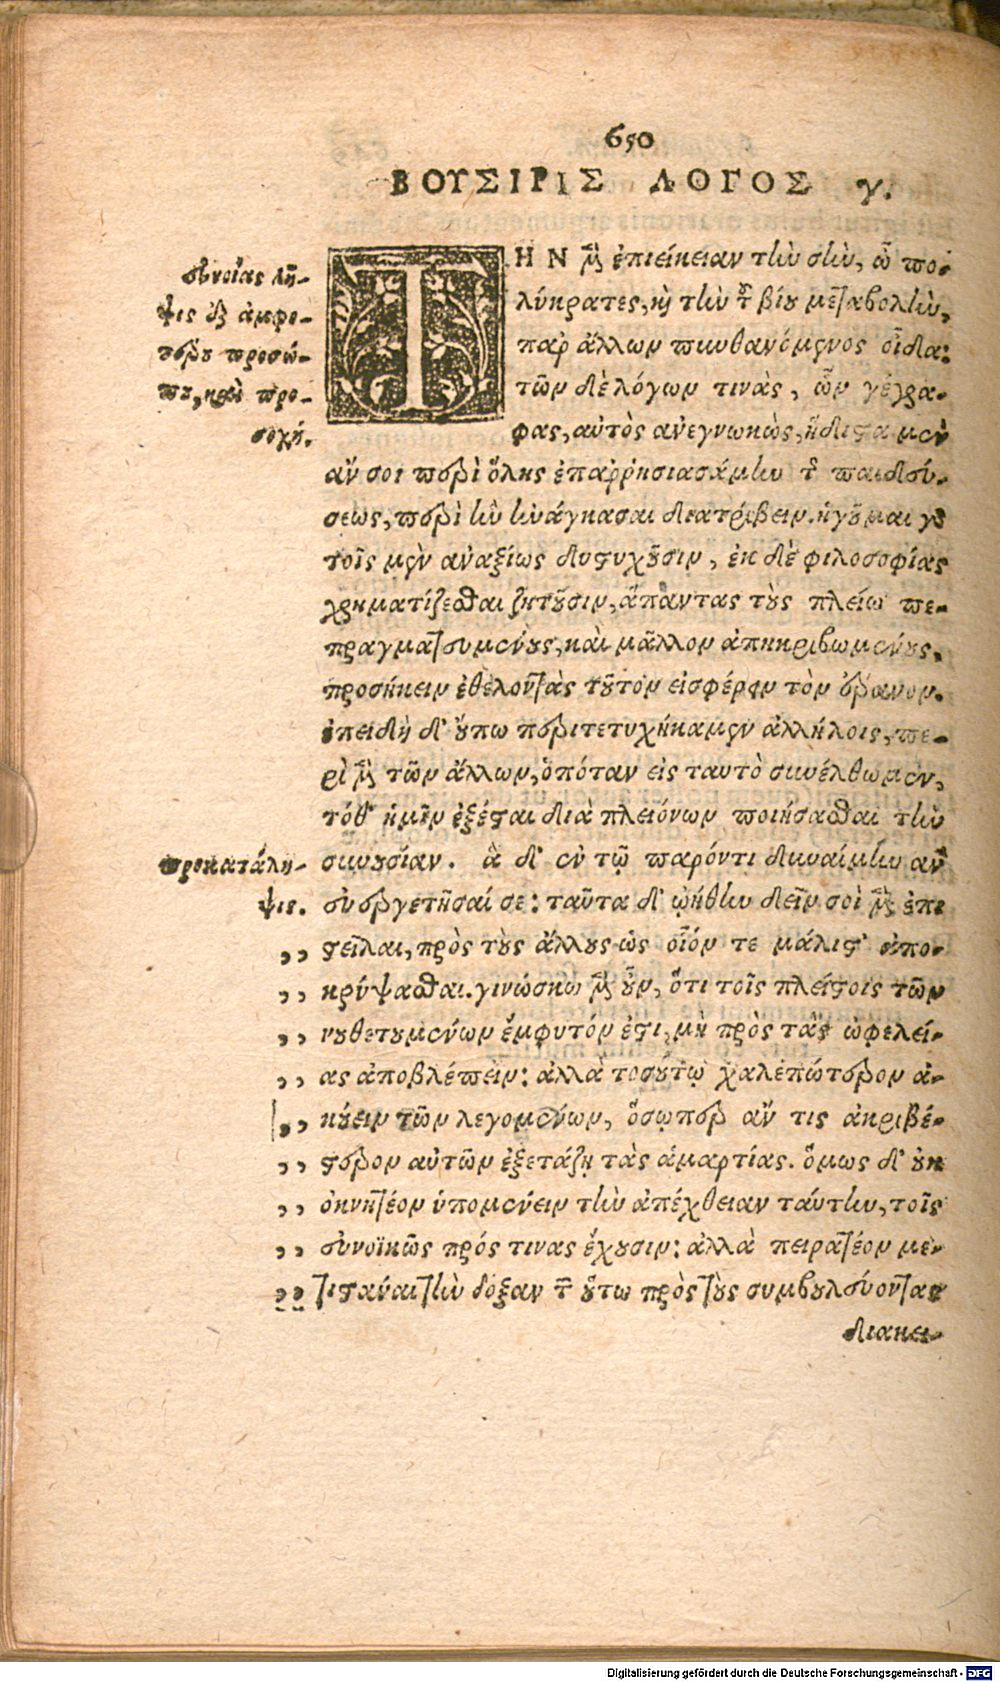 650
ΒΟΥΣΙΡΙΣ ΛΟΓΟΣ γ.
εὐνοίας λῆ-
ψις ἐξ ἀμφο-
τέρου προσώ-
που, καὶ προ-
σοχή.
ΤΗΝ μὲν ἐπιείκειαν τὴν σὴν, ὦ πο-
λύκρατες, καὶ τὴν τοῦ βίου μεταβολὴν,
παρ ἄλλων πυνθανόμενος οἶδα:
τῶν δὲ λόγων τινὰς, ὧν γέγρα-
φας, αὐτὸς ἀνεγνωκὼς, ἥδιστα μὲν
ἄν σοι περὶ ὅλης ἐπαῤῥησιασάμην τῆς παιδεύ-
σεως, περὶ ἣν ἠνάγκασαι διατρίβειν. ἡγοῦμαι γὰρ
τοῖς μὲν ἀναξίως δυστυχοῦσιν, ἐκ δὲ φιλοσοφίας
χρηματίζεσθαι ζητοῦσιν, ἅπαντας τοὺς πλείω πε-
πραγματευμένους, καὶ μᾶλλον ἀπηκριβωμένους,
προσήκειν ἐθέλοντὰς τοῦτον εἰσφέρειν τὸν ἔρανον.
ἐπειδὴ δ' οὔπω περιτετυχήκαμεν ἀλλήλοις, πε-
ρὶ μὲν τῶν ἄλλων, ὁπόταν εἰς ταυτὸ συνέλθωμεν,
τόθ' ἡμῖν ἐξέσται διὰ πλειόνων ποιήσασθαι τὴν
προκατάλη-
ψις.
συνουσίαν. ἃ δ' ἐν τῷ παρόντι δυναίμην ἂν
εὐεργετῆσαί σε: ταῦτα δ' ᾠήθην δεῖν σοὶ μὲν ἐπι
,, στεῖλαι, πρὸς τοὺς ἄλλους ὡς οἷόν τε μάλιστ' ἀπο-
,, κρύψασθαι. γινώσκω μὲν οὖν, ὅτι τοῖς πλείστοις τῶν
,, νουθετουμένων ἔμφυτόν ἐστι, μὴ πρὸς τὰς ὠφελεί-
,, ας ἀποβλέπειν: ἀλλὰ τοσούτῳ χαλεπώτερον ἀ-
,, κούειν τῶν λεγομένων, ὅσῳπερ ἄν τις ἀκριβέ-
,, στερον αὐτῶν ἐξετάζῃ τὰς ἁμαρτίας. ὅμως δ' οὐκ
,, ὀκνητέον ὑπομένειν τὴν ἀπέχθειαν ταύτην, τοῖς
,, εὐνοϊκῶς πρός τινας ἔχουσιν: ἀλλὰ πειρατέον με-
,, τιστάναι τὴν δόξαν τῶν οὕτω πρὸς τοὺς συμβουλεύοντας
διακει-
Digitalisierung gefördert durch die Deutsche Forschungsgemeinschaft - DFG